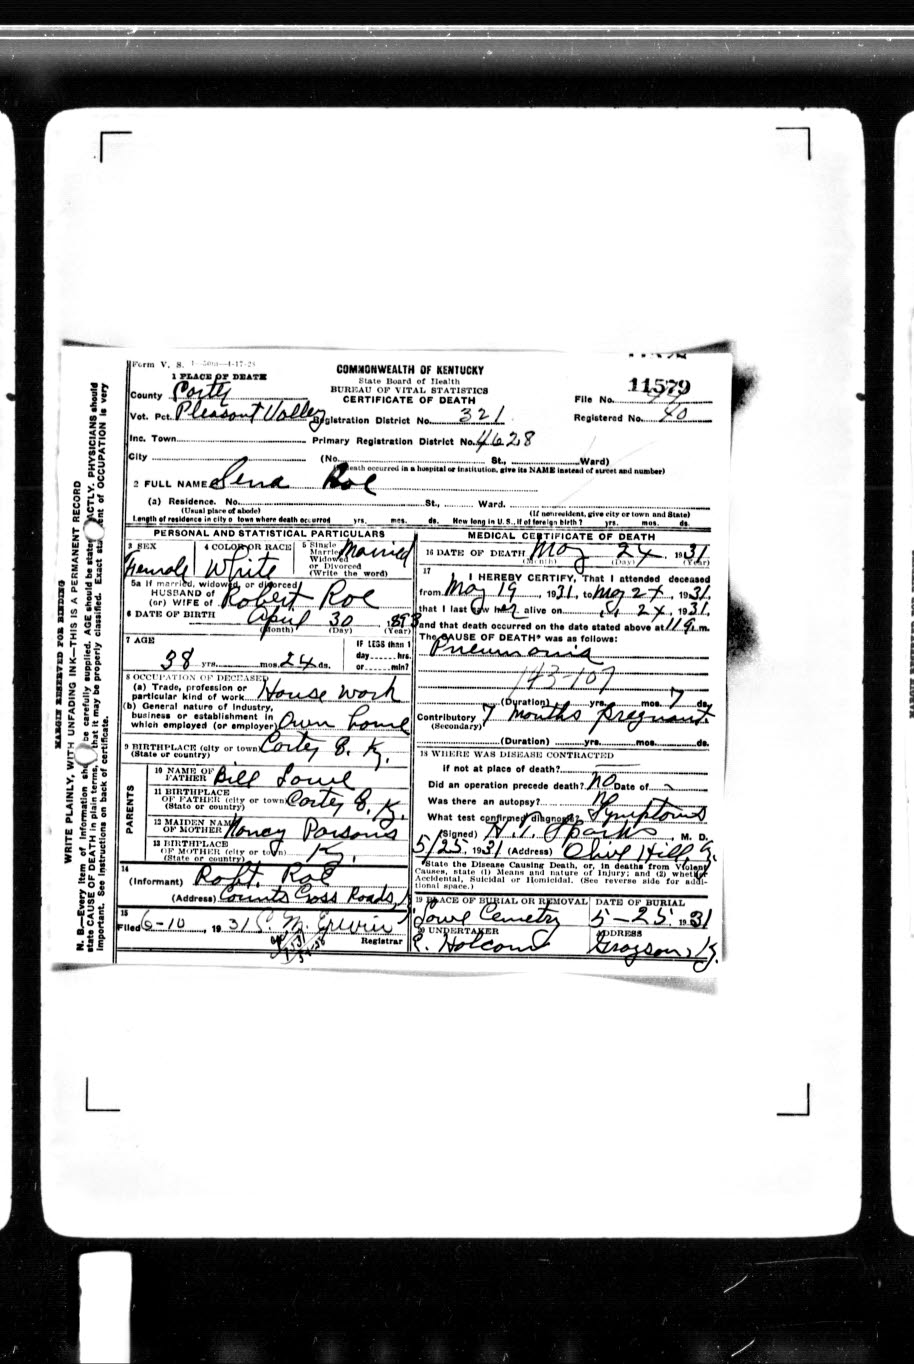 Form V. S. 1—50m—4-17-28
COMMONWEALTH OF KENTUCKY
State Board of Health
BUREAU OF VITAL STATISTICS
CERTIFICATE OF DEATH
11579
File No.
Registered No. 40
1 PLACE OF DEATH
County Carter
Vot. Pct. Pleasant Valley Registration District No. 321
Inc. Town Primary Registration District No. 4628
City (No. St., Ward)
death occurred in a hospital or institution, give its NAME instead of street and number)
2 FULL NAME Sena Roe
(a) Residence. No. St., Ward.
(Usual place of abode) (If nonresident, give city or town and State)
Length of residence in city o town where death occurred yrs. mos. ds. How long in U. S., if of foreign birth? yrs. mos. ds.
PERSONAL AND STATISTICAL PARTICULARS
3 SEX 4 COLOR OR RACE 5 Single Married Widowed or Divorced (Write the word)
Female White Married
5a If married, widowed, or divorced
HUSBAND of
(or) WIFE of Robert Roe
6 DATE OF BIRTH April 30, 1893
(Month) (Day) (Year)
7 AGE
38 yrs. mos. 24 ds.
IF LESS than 1
day hrs.
or min?
8 OCCUPATION OF DECEASED
(a) Trade, profession or
particular kind of work House work
(b) General nature of industry,
business or establishment in
which employed (or employer) Own home
9 BIRTHPLACE (city or town) Carter Co. Ky.
(State or country)
PARENTS
10 NAME OF FATHER Bill Lowe
11 BIRTHPLACE OF FATHER (city or town) Carter Co. Ky.
(State or country)
12 MAIDEN NAME OF MOTHER Nancy Parsons
13 BIRTHPLACE OF MOTHER (city or town) Ky.
(State or country)
14
(Informant) Robt. Roe
(Address) Counts Cross Roads,
15
Filed 6-10, 1931 Registrar
MEDICAL CERTIFICATE OF DEATH
16 DATE OF DEATH May 24, 1931
(Month) (Day) (Year)
17
I HEREBY CERTIFY, That I attended deceased
from May 19, 1931, to May 24, 1931.
that I last saw her alive on 24, 1931.
and that death occurred on the date stated above at m.
The CAUSE OF DEATH* was as follows:
Pneumonia
143-107
(Duration) yrs. mos. 7 ds.
Contributory 7 months pregnant
(Secondary)
(Duration) yrs. mos. ds.
18 WHERE WAS DISEASE CONTRACTED
if not at place of death?
Did an operation precede death? No Date of
Was there an autopsy? No
What test confirmed diagnosis? Symptoms
(Signed) Sparks, M. D.
5/25, 1931 (Address) Olive Hill, Ky.
*State the Disease Causing Death, or, in deaths from Violent
Causes, state (1) Means and nature of Injury; and (2) whether
Accidental, Suicidal or Homicidal. (See reverse side for addi-
tional space.)
19 PLACE OF BURIAL OR REMOVAL DATE OF BURIAL
Lowe Cemetry 5-25 1931
20 UNDERTAKER ADDRESS
Grayson, Ky.
MARGIN RESERVED FOR BINDING
WRITE PLAINLY, WITH UNFADING INK—THIS IS A PERMANENT RECORD
N. B.—Every item of information should be carefully supplied. AGE should be stated EXACTLY. PHYSICIANS should
state CAUSE OF DEATH in plain terms, that it may be properly classified. Exact statement of OCCUPATION is very
important. See instructions on back of certificate.